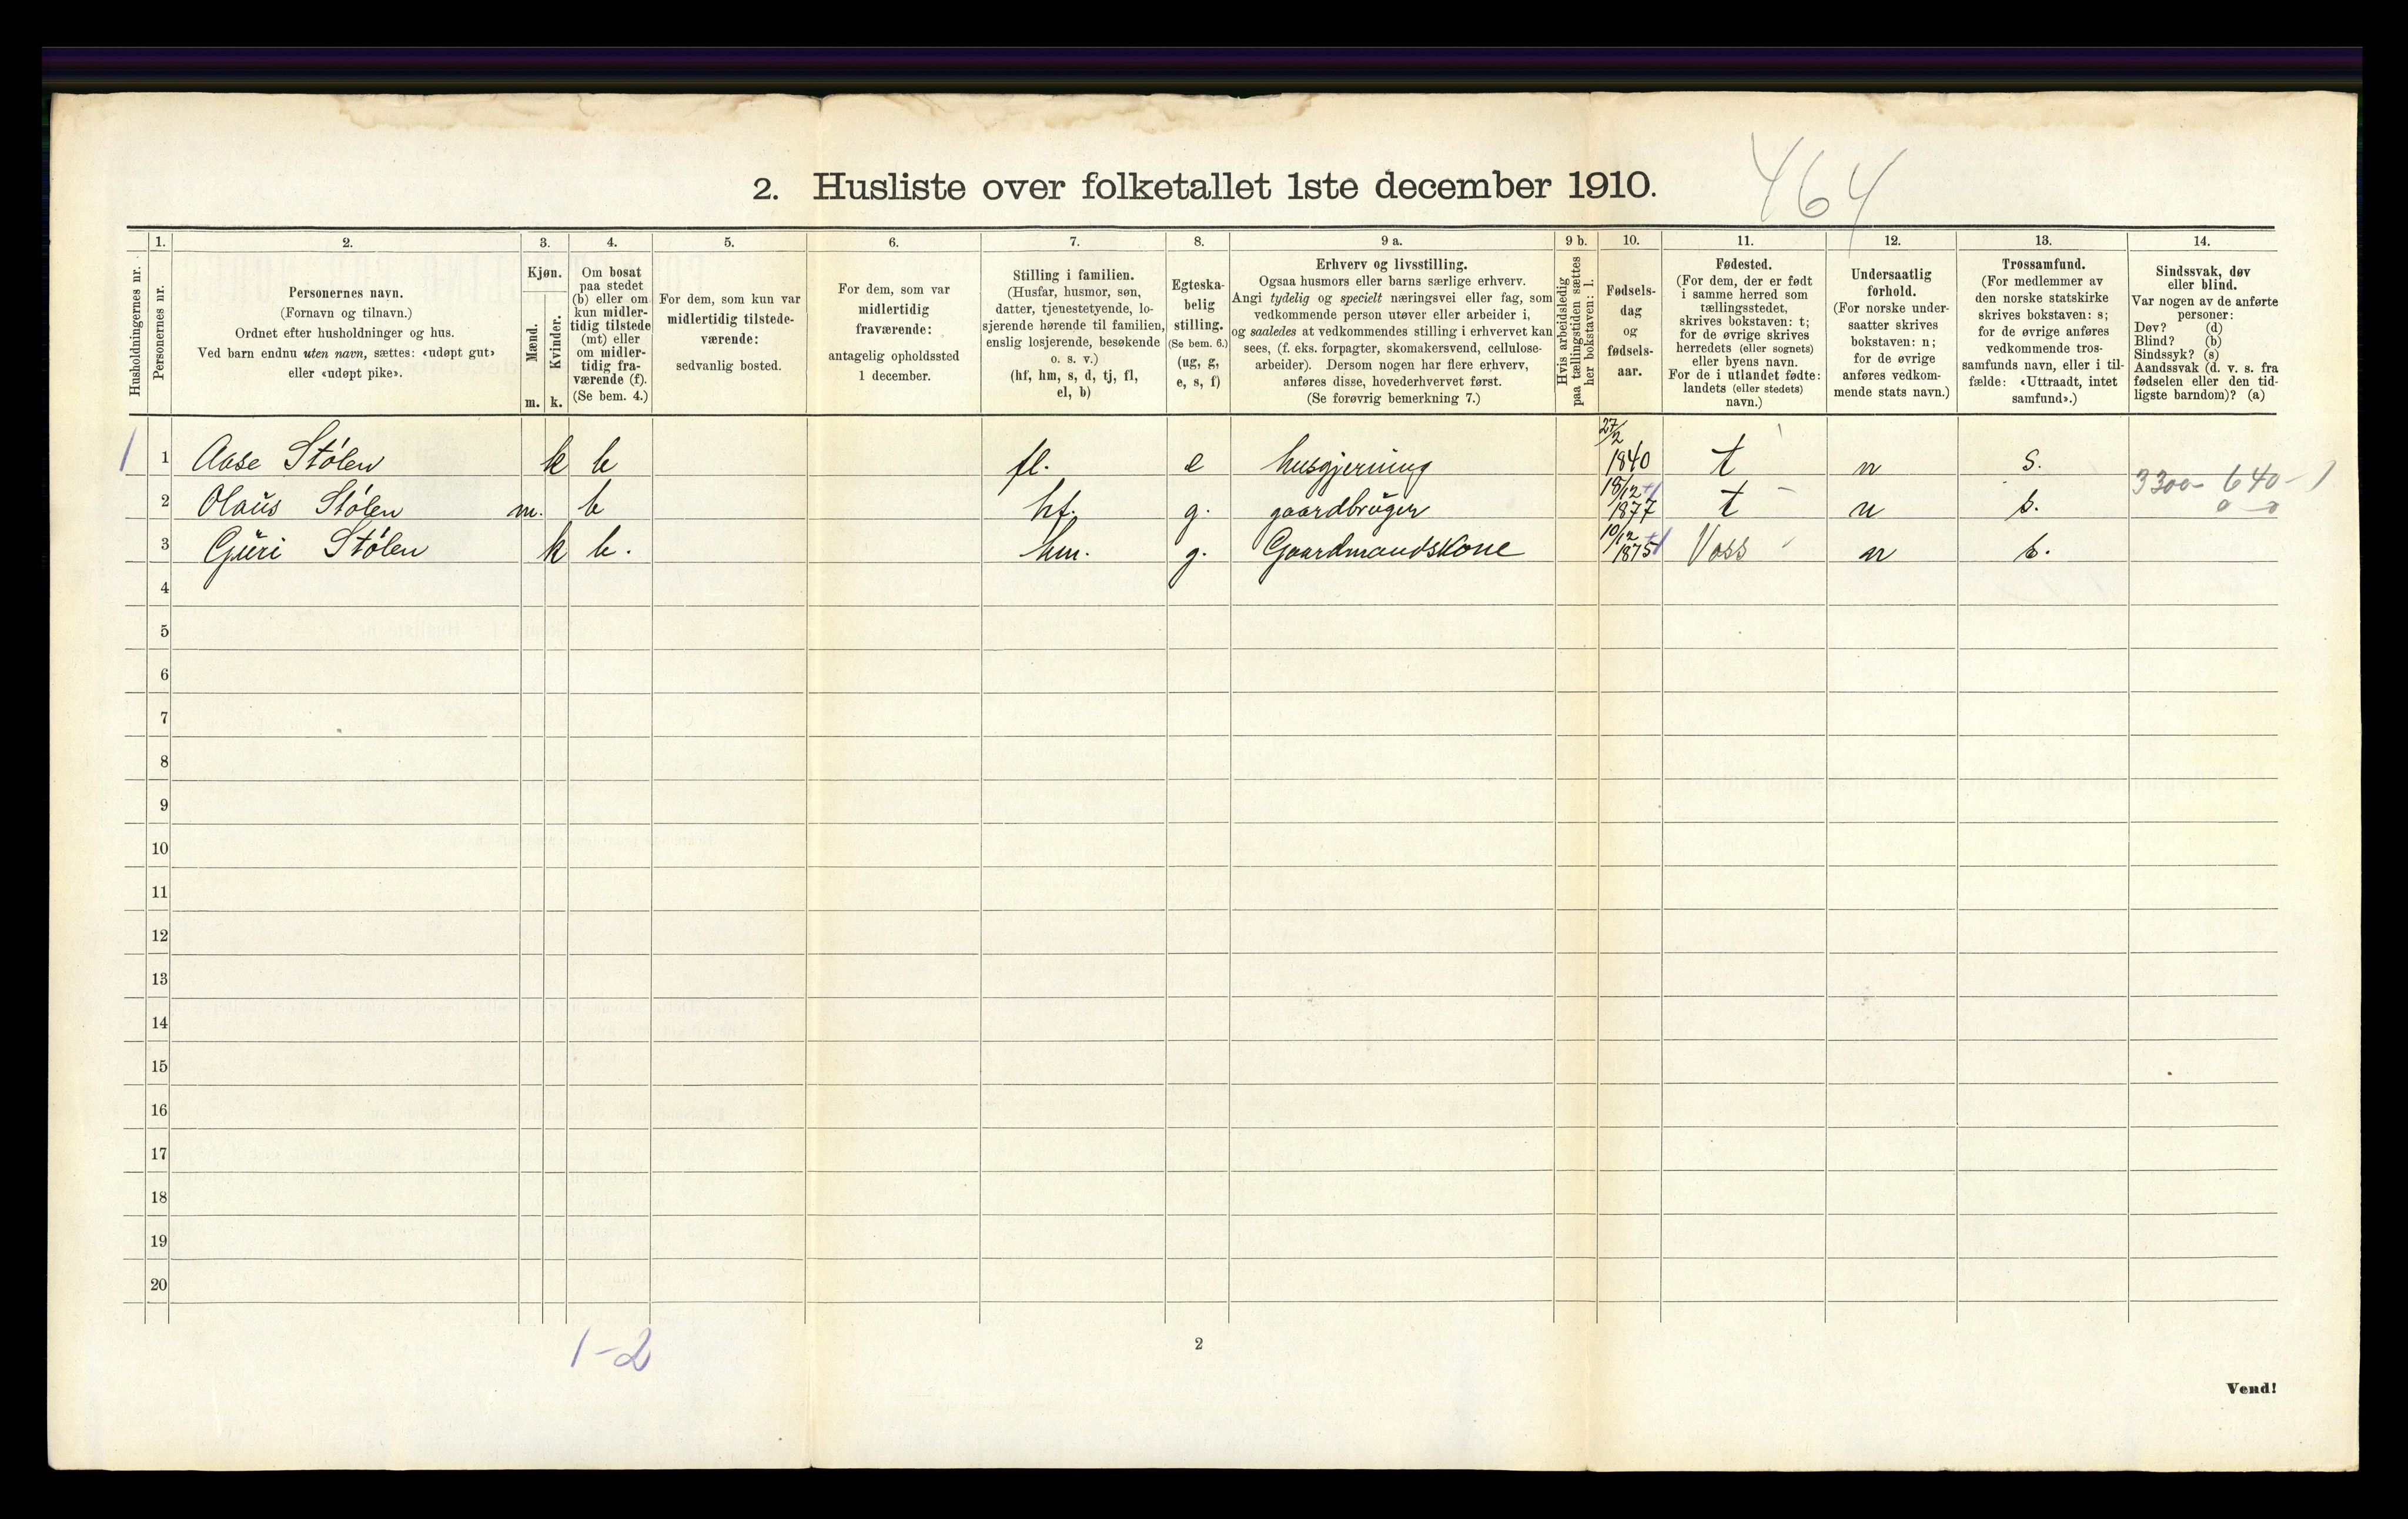 464
2. Husliste over folketallet 1ste december 1910.
Husholdningernes nr.
1. Personernes nr.
2. Personernes navn.
(Fornavn og tilnavn.)
Ordnet efter husholdninger og hus.
Ved barn endnu uten navn, sættes: «udøpt gut»
eller «udøpt pike».
3. Kjøn.
Mænd. Kvinder.
m. k.
4. Om bosat
paa stedet
(b) eller om
kun midler-
tidig tilstede
(mt) eller
om midler-
tidig fra-
værende (f).
(Se bem. 4.)
5. For dem, som kun var
midlertidig tilstede-
værende:
sedvanlig bosted.
6. For dem, som var
midlertidig
fraværende:
antagelig opholdssted
1 december.
7. Stilling i familien.
(Husfar, husmor, søn,
datter, tjenestetyende, lo-
sjerende hørende til familien,
enslig losjerende, besøkende
o. s. v.)
(hf, hm, s, d, tj, fl,
el, b)
8. Egteska-
belig
stilling.
(Se bem. 6.)
(ug, g,
e, s, f)
9 a. Erhverv og livsstilling.
Ogsaa husmors eller barns særlige erhverv.
Angi tydelig og specielt næringsvei eller fag, som
vedkommende person utøver eller arbeider i,
og saaledes at vedkommendes stilling i erhvervet kan
sees, (f. eks. forpagter, skomakersvend, cellulose-
arbeider). Dersom nogen har flere erhverv,
anføres disse, hovederhvervet først.
(Se forøvrig bemerkning 7.)
9 b. Hvis arbeidsledig
paa tællingstiden sættes
her bokstaven: l.
10. Fødsels-
dag
og
fødsels-
aar.
11. Fødested.
(For dem, der er født
i samme herred som
tællingsstedet,
skrives bokstaven: t;
for de øvrige skrives
herredets (eller sognets)
eller byens navn.
For de i utlandet fødte:
landets (eller stedets)
navn.)
12. Undersaatlig
forhold.
(For norske under-
saatter skrives
bokstaven: n;
for de øvrige
anføres vedkom-
mende stats navn.)
13. Trossamfund.
(For medlemmer av
den norske statskirke
skrives bokstaven: s;
for de øvrige anføres
vedkommende tros-
samfunds navn, eller i til-
fælde: «Uttraadt, intet
samfund».)
14. Sindssvak, døv
eller blind.
Var nogen av de anførte
personer:
Døv? (d)
Blind? (b)
Sindssyk? (s)
Aandssvak (d. v. s. fra
fødselen eller den tid-
ligste barndom)? (a)
1 1 Aase Stølen k b fl. e husgjerning 27/2 1840 t n s.
3300 - 640 - 1
0 0
2 Olaus Stølen m. b hf. g. gaardbruger 18/12 1877 t n s.
3 Guri Stølen k b. hm. g. Gaardmandskone 10/12 1875 Voss n s.
4
5
6
7
8
9
10
11
12
13
14
15
16
17
18
19
20
1-2
2
Vend!